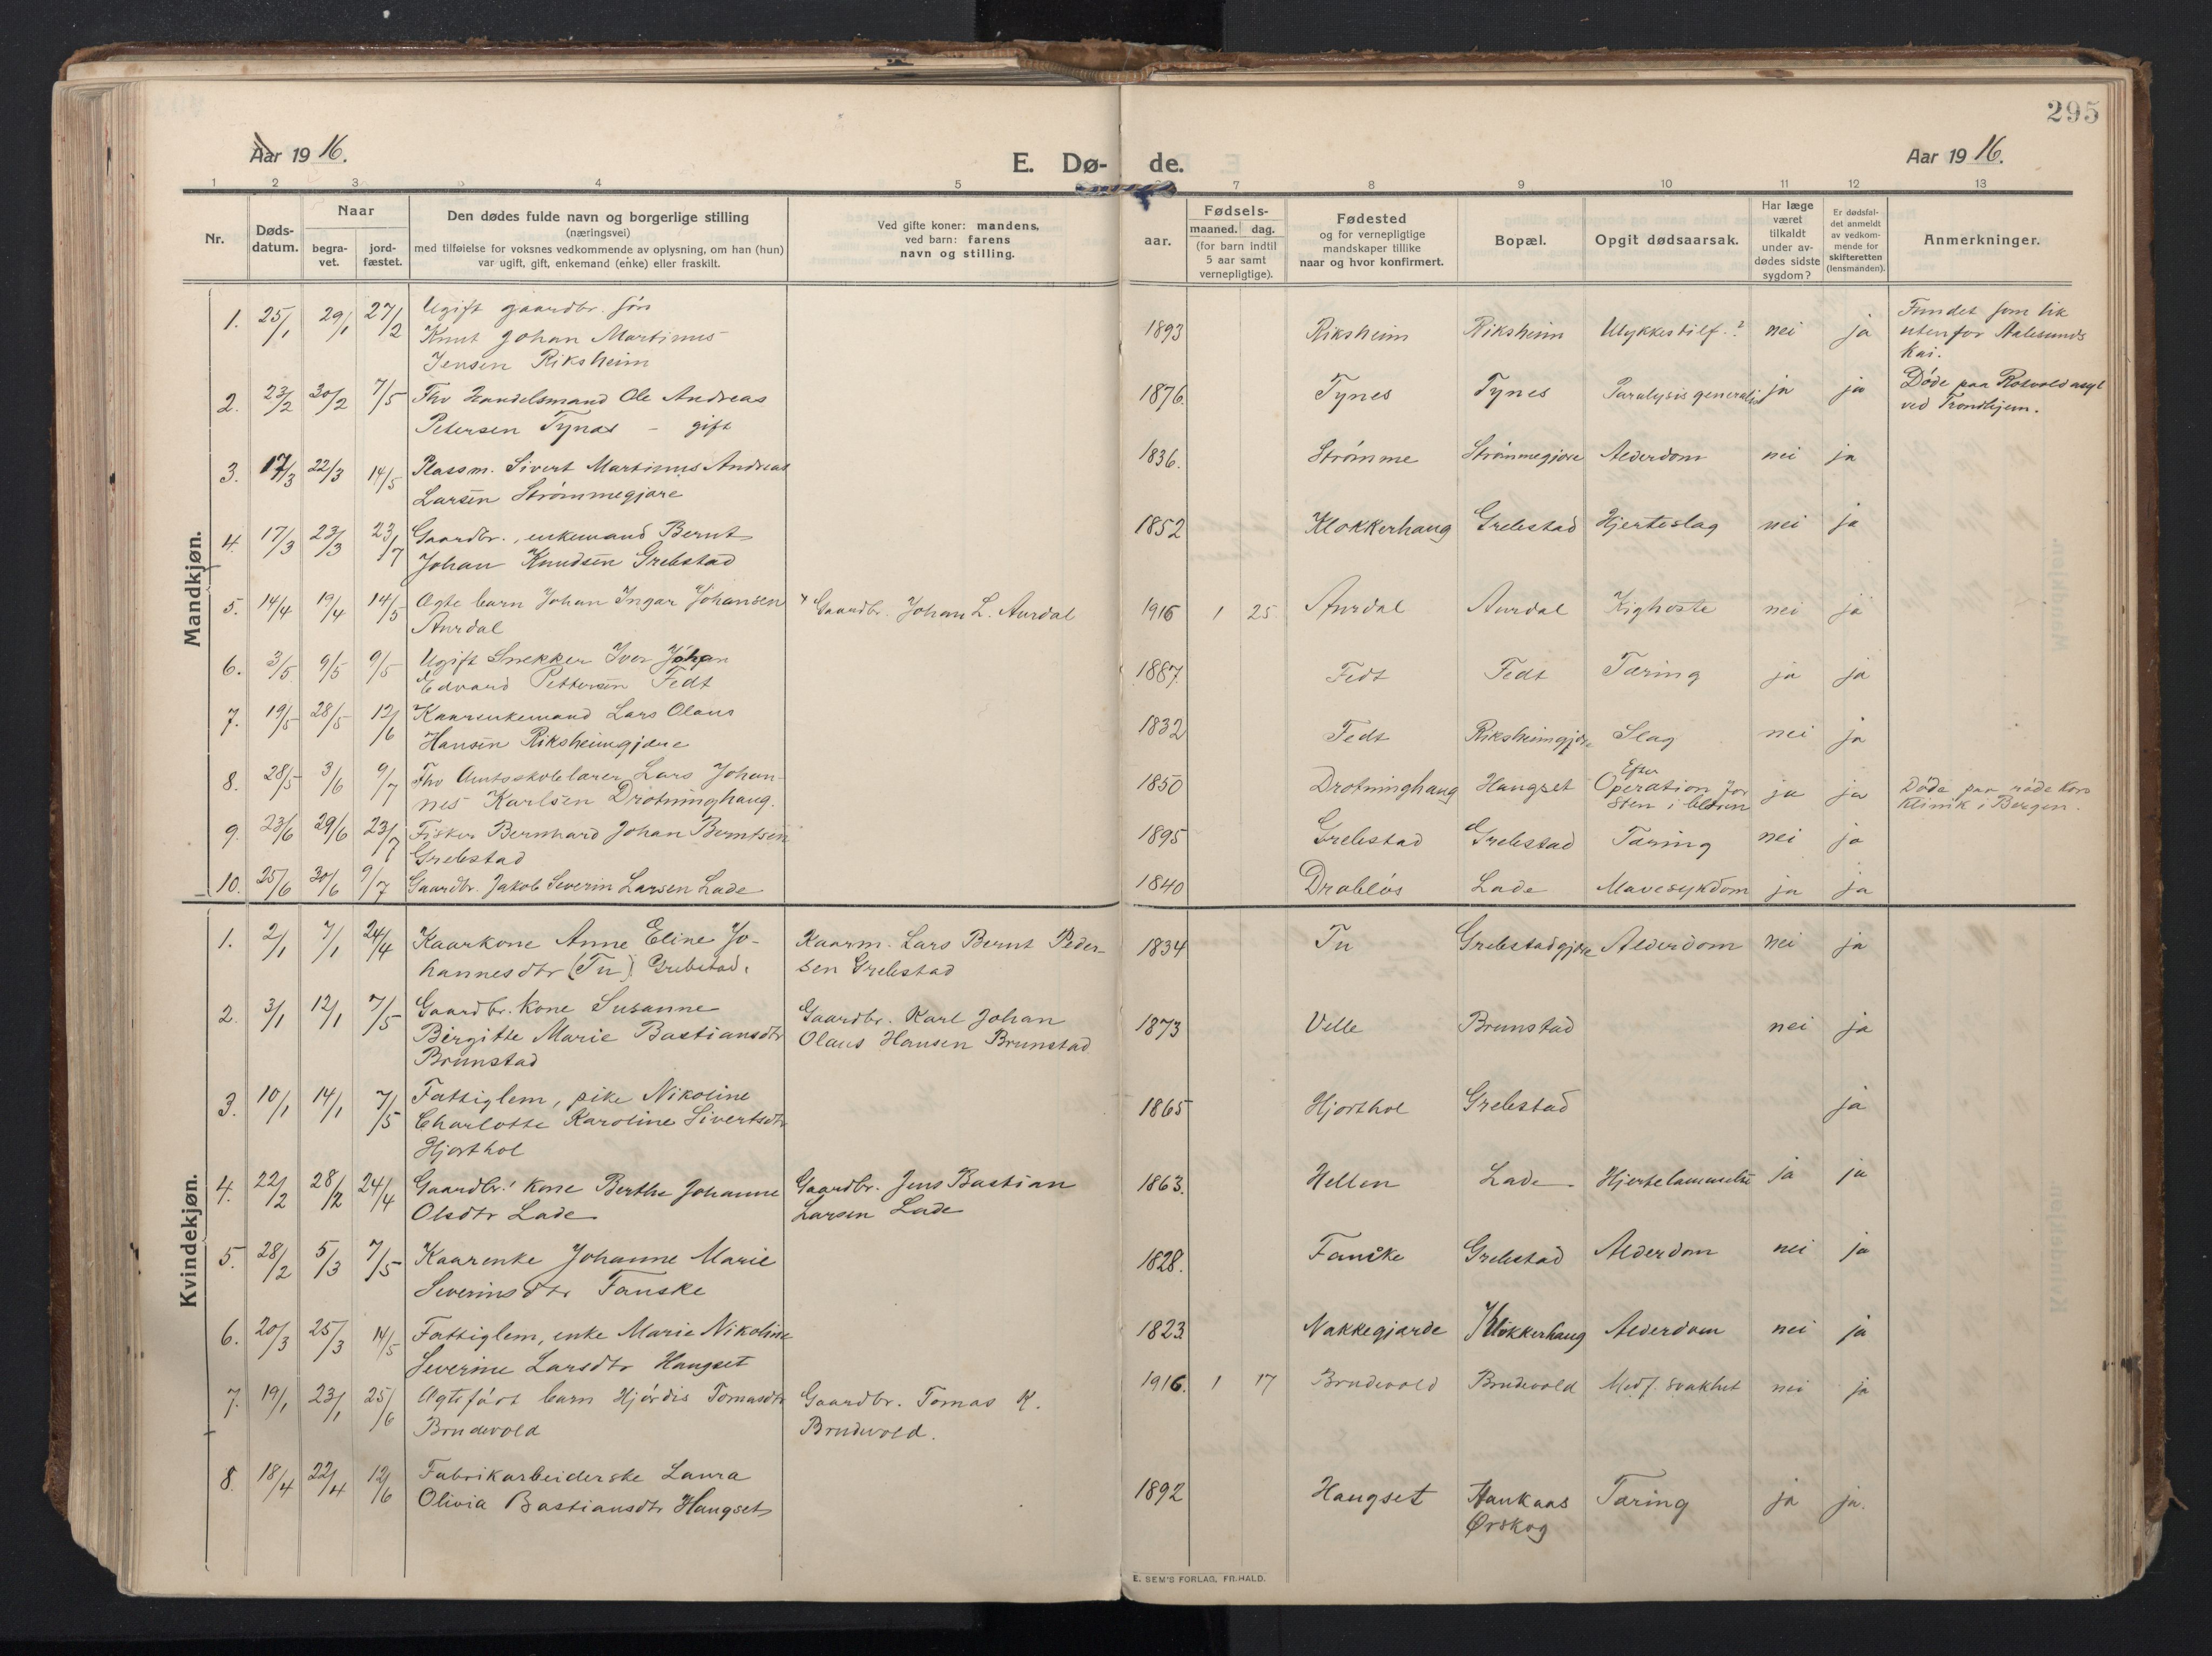 295
Aar 19 16.
E. Dø- de.
Aar 19 16.
1 2 3 4 5 7 8 9 10 11 12 13
Nr.
Døds-
datum.
Naar
begra-
vet.
jord-
fæstet.
Den dødes fulde navn og borgerlige stilling
(næringsvei)
med tilføielse for voksnes vedkommende av oplysning, om han (hun)
var ugift, gift, enkemand (enke) eller fraskilt.
Ved gifte koner: mandens,
ved barn: farens
navn og stilling.
aar.
Fødsels-
maaned. dag.
(for barn indtil
5 aar samt
vernepligtige).
Fødested
og for vernepligtige
mandskaper tillike
naar og hvor konfirmert.
Bopæl.
Opgit dødsaarsak.
Har læge
været
tilkaldt
under av-
dødes sidste
sygdom?
Er dødsfal-
det anmeldt
av vedkom-
mende for
skifteretten
(lensmanden).
Anmerkninger.
Mandkjøn.
1. 25/1 29/1 27/2 Ugift gaardbr. søn
Knut Johan Martinus
Jensen Riksheim
1893 Riksheim Riksheim Ulykkestilf.? nei ja
Fundet som lik
utenfor Aalesunds
kai.
2. 23/2 30/2 7/5 Fhv Handelsmand Ole Andreas
Petersen Tynes - gift
1876. Tynes Tynes Paralysis generalis ja ja
Døde paa Rotvold asyl
ved Trondhjem.
3. 17/3 22/3 14/5 Plassm. Sivert Martinus Andreas
Larsen Strømmegjære
1836. Strømme Strømmegjære Alderdom nei ja
4. 17/3 23/3 23/7 Gaardbr., enkemand Bernt
Johan Knudsen Grebstad
1852 Klokkerhaug Grebstad Hjerteslag nei ja
5. 14/4 19/4 14/5 Ægte barn Johan Ingar Johansen
Aurdal
Gaardbr. Johan L. Aurdal
1916 1 25 Aurdal Aurdal Kighoste nei ja
6. 3/5 9/5 9/5 Ugift Snekker Iver Johan
Edvard Pettersen Fedt
1887. Fedt Fedt Tæring ja ja
7. 19/5 28/5 12/6 Kaarenkemand Lars Olaus
Hansen Riksheimgjære
1832 Fedt Riksheimgjære Slag nei ja
8. 28/5 3/6 9/7 Fhv Amtsskolelærer Lars Johan-
nes Karlsen Drotninghaug.
1850 Drotninghaug Haugset Efter
Operation for
Sten i blæren
ja ja
Døde paa røde Kors
Klinik i Bergen.
9. 23/6 29/6 23/7 Fisker Bernhard Johan Berntsen
Grebstad
1895 Grebstad Grebstad Tæring nei ja
10. 25/6 30/6 9/7 Gaardbr. Jakob Severin Larsen Lade
1840 Drabløs Lade Mavesykdom ja ja
Kvindekjøn.
1. 2/1 7/1 24/4 Kaarkone Anne Eline Jo-
hannesdtr (Tu) Grebstad.
Kaarm. Lars Bernt Peder-
sen Grebstad
1834 Tu Grebstadgjære Alderdom nei ja
2. 3/1 12/1 7/5 Gaardbr. kone Susanne
Birgitte Marie Bastiansdtr
Brunstad
Gaardbr. Karl Johan
Olaus Hansen Brunstad
1873 Velle Brunstad nei ja
3. 10/1 14/1 7/5 Fattiglem, pike Nikoline
Charlotte Karoline Sivertsdtr
Hjorthol
1865 Hjorthol Grebstad ja
4. 22/2 28/2 24/4 Gaardbr. kone Berthe Johanne
Olsdtr Lade
Gaardbr. Jens Bastian
Larsen Lade
1863. Hellen Lade. Hjertelammelse ja ja
5. 28/2 5/3 7/5 Kaarenke Johanne Marie
Severinsdtr Fauske
1828. Fauske Grebstad Alderdom nei ja
6. 20/3 25/3 14/5 Fattiglem, enke Marie Nikoline
Severine Larsdtr Haugset
1823 Nakkegjærde Klokkerhaug Alderdom nei ja
7. 19/1 23/1 25/6 Ægtefødt barn Hjørdis Tomasdtr
Brudevold
Gaardbr. Tomas K.
Brudevold.
1916. 1 17 Brudevold Brudevold Medf. svakhet nei ja
8 18/4 22/4 12/6 Fabrikarbeiderske Laura
Olivia Bastiansdtr Haugset
1892 Haugset Haukaas
Ørskog
Tæring ja ja.
E. SEM'S FORLAG, FR.HALD.